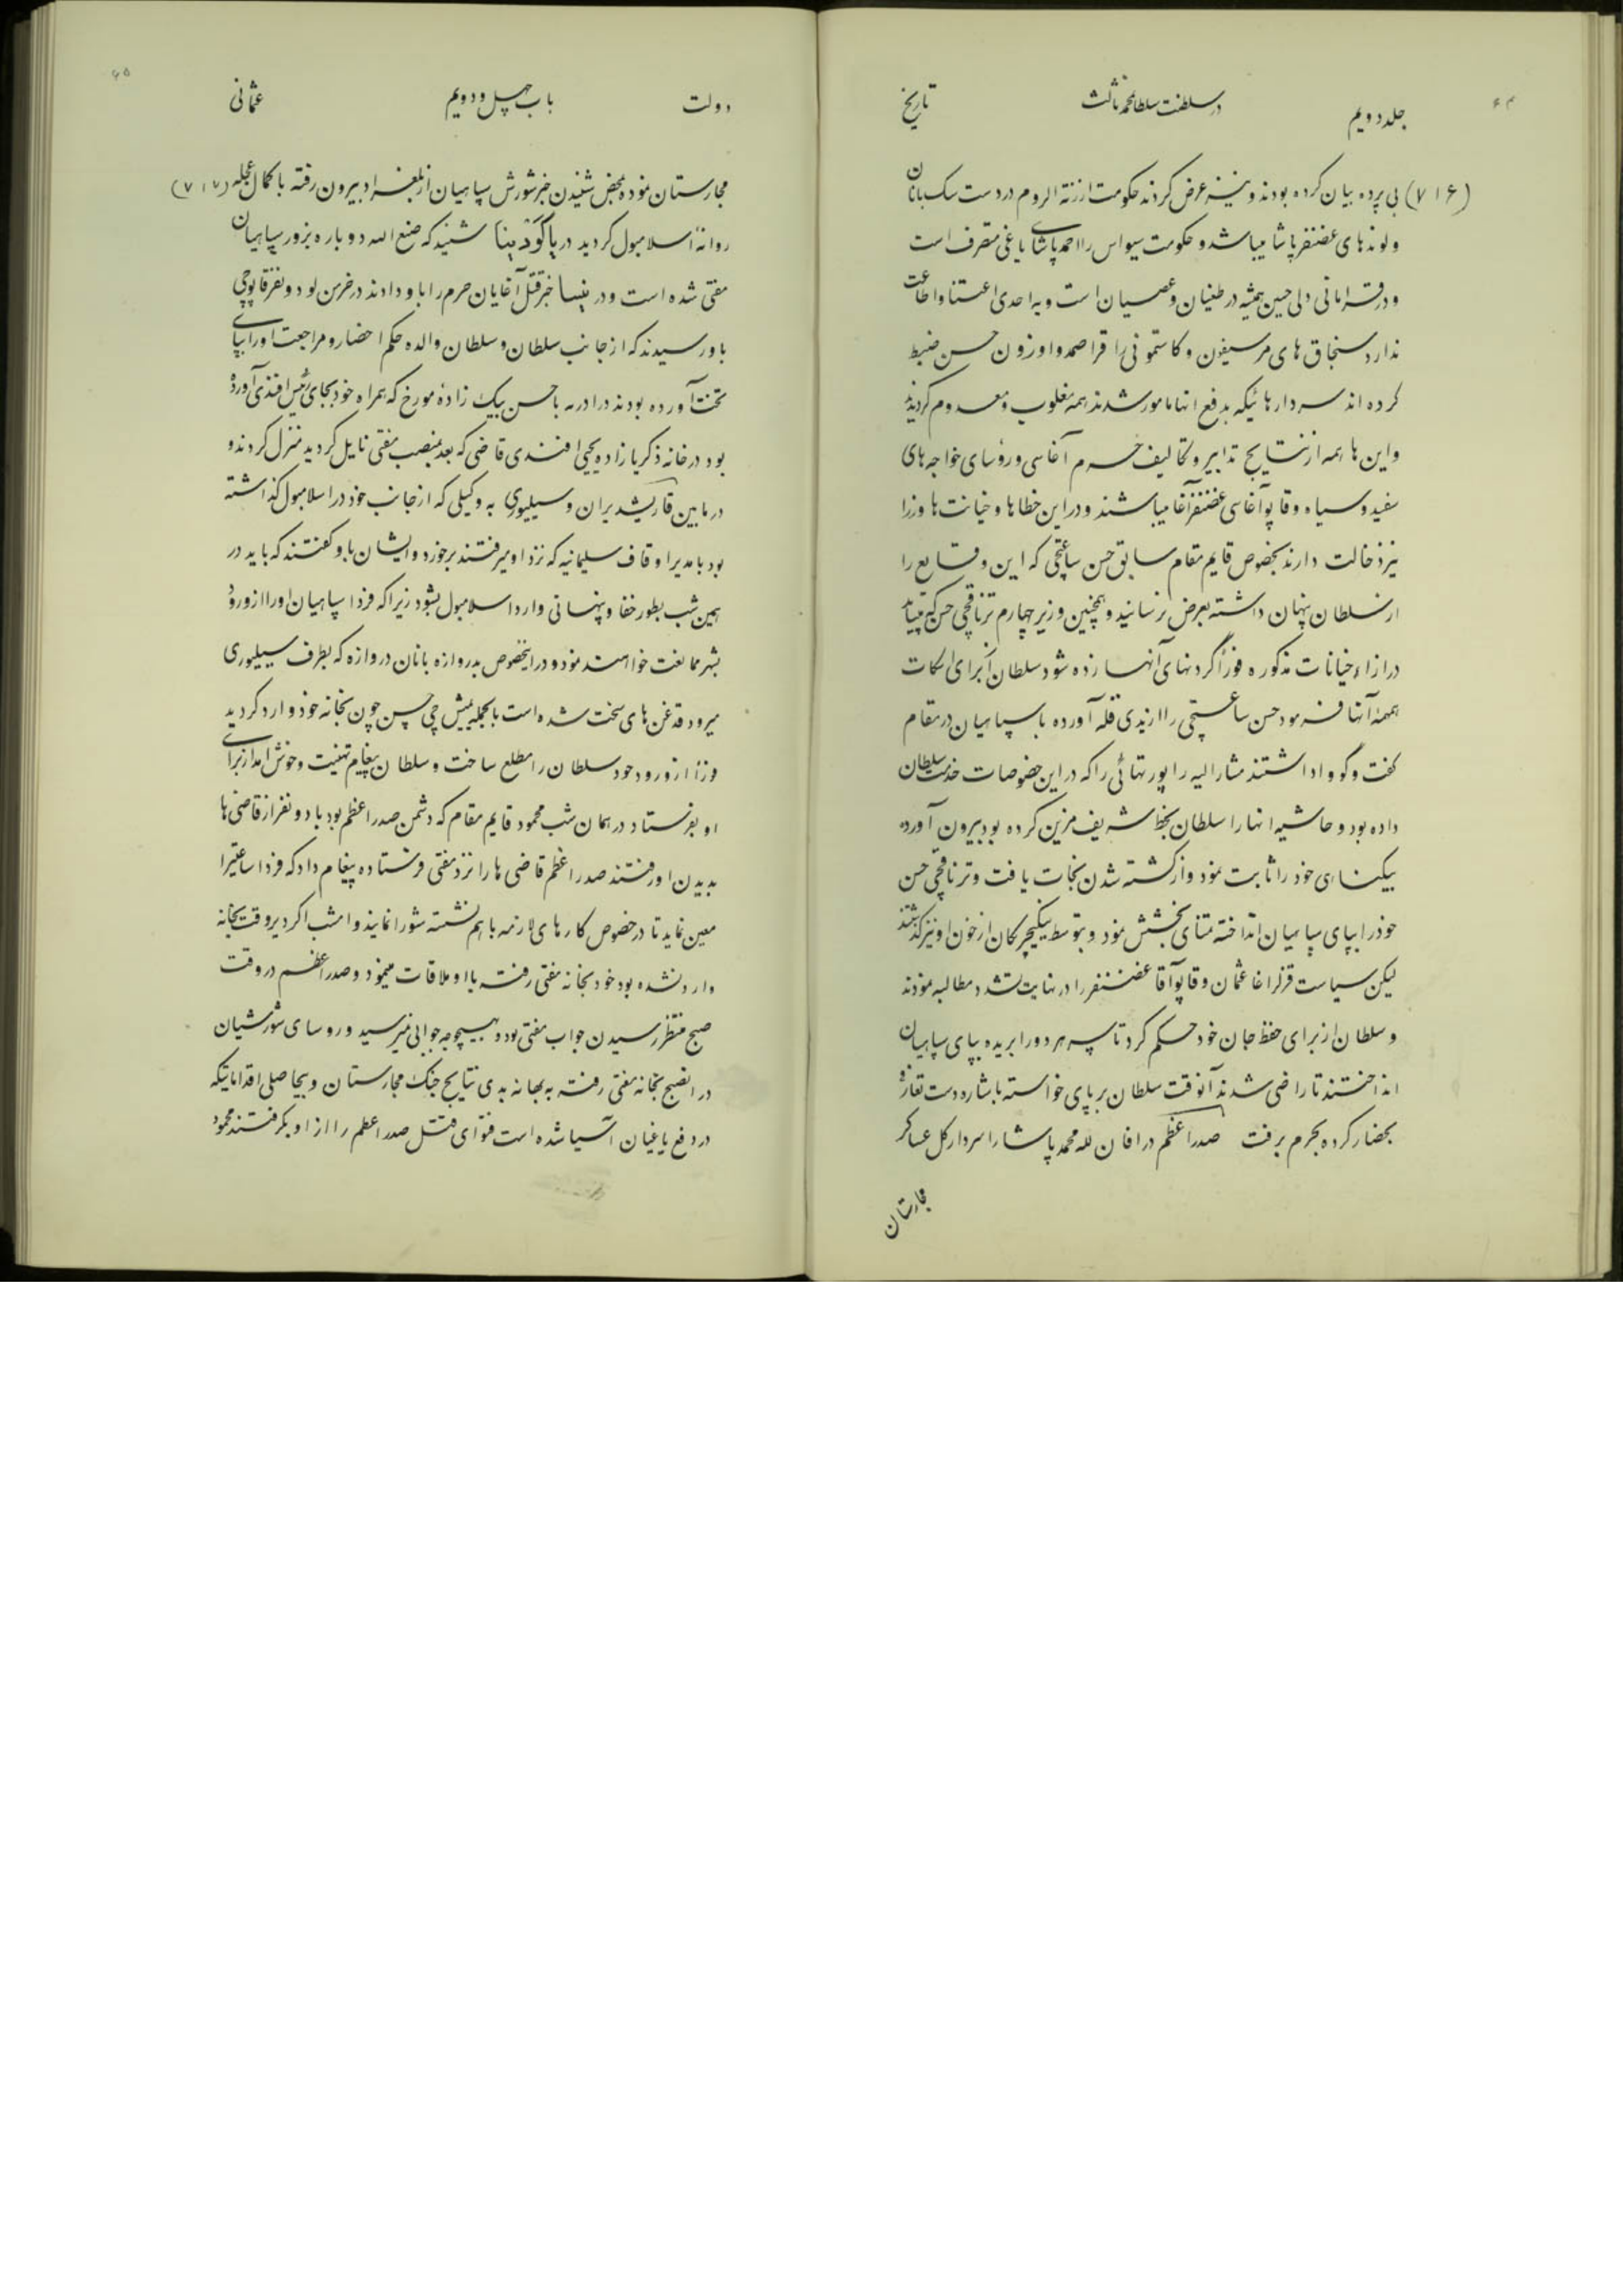 جلد دویم
در سلطنت سلطان محمد ثالث
تاریخ
(۷۱۶) بی پرده بیان کرده بودند و نیز عرض کردند حکومت ارزنة الروم در دست سک بانان
و لوندهای غضنفر پاشا میباشد و حکومت سیواس را احمد پاشای یاغی متصرف است
و در قرامانی دلی حسین همیشه در طغیان و عصیان است و به احدی اعتنا و اطاعت
ندارد سنجاق های مرسیفون و کاستمونی را قراصمد و اوزون حسن ضبط
کرده اند سردارهائیکه بدفع انها مامور شدند همه مغلوب و معدوم کردیدند
و این ها همه از نتایج تدابیر و تکالیف حرم آغاسی و رؤسای خواجه های
سفید و سیاه و قاپو آغاسی غضنفر آغا میباشند و در این خطاها و خیانت ها وزرا
نیز دخالت دارند بخصوص قایم مقام سابق حسن ساعتچی که این وقایع را
از سلطان پنهان داشته بعرض نرسانید و همچنین وزیر چهارم ترناقچی حسن که میباید
در ازاء خیانات مذکوره فوراً گردنهای آنها زده شود سلطان از برای اسکات
همهمهٔ آنها فرمود حسن ساعتچی را از یدی قله آورده با سپاهیان در مقام
گفت و گو واداشتند مشارالیه راپورتهائی را که در این خصوصات خدمت سلطان
داده بود و حاشیه انها را سلطان بخط شریف مزین کرده بود بیرون آورده
بیکناهی خود را ثابت نمود و از کشته شدن نجات یافت و ترناقچی حسن
خود را بپای سپاهیان انداخته تمنای بخشش نمود و بتوسط ینکیچریکان از خون او نیز گذشتند
لیکن سیاست قزلر اغا عثمان و قاپو آقا غضنفر را در نهایت تشدد مطالبه نمودند
و سلطان از برای حفظ جان خود حکم کرد تا سر هر دو را بریده بپای سپاهیان
انداختند تا راضی شدند آنوقت سلطان بر پای خواسته باشاره دست تعارف
بحضار کرده بحرم برفت صدر اعظم در افان لله محمد پاشا را سردار کل عساکر
مجارستان
دولت
باب چهل و دویم
عثمانی
۶۵
مجارستان نموده بمحض شنیدن خبر شورش سپاهیان از بلغراد بیرون رفته با کمال عجله (۷۱۷)
روانهٔ اسلامبول کردید در پاگودینا شنید که صنع الله دوباره بزور سپاهیان
مفتی شده است و در نیسا خبر قتل آغایان حرم را باو دادند در خرمن لو دو نفر قاپوچی
باو رسیدند که از جانب سلطان و سلطان والده حکم احضار و مراجعت او را بپای
تخت آورده بودند در ادرنه با حسن بیک زادهٔ مورخ که همراه خود بجای رئیس افندی آورده
بود در خانه ذکریا زاده یحیی افندی قاضی که بعد بمنصب مفتی نایل کردید منزل کردند و
در ما بین قارشدیران و سیلیوری به وکیلی که از جانب خود در اسلامبول گذاشته
بود با مدیر اوقاف سلیمانیه که نزد او میرفتند برخورد و ایشان باو گفتند که باید در
همین شب بطور خفا و پنهانی وارد اسلامبول بشود زیرا که فردا سپاهیان او را از ورود
بشهر ممانعت خواهند نمود و در اینخصوص بدروازه بانان دروازه که بطرف سیلیوری
میرود قدغن های سخت شده است بالجمله یمیش چی حسن چون بخانه خود وارد کردید
فوراً از ورود خود سلطان را مطلع ساخت و سلطان پیغام تهنیت و خوش امد از برای
او بفرستاد در همان شب محمود قایم مقام که دشمن صدر اعظم بود با دو نفر از قاضی ها
بدیدن او رفتند صدر اعظم قاضی ها را نزد مفتی فرستاده پیغام داد که فردا ساعتیرا
معین نماید تا در خصوص کارهای لازمه با هم نشسته شورا نمایند و امشب اگر دیر وقت بخانه
وارد نشده بود خود بخانه مفتی رفته با او ملاقات مینمود و صدر اعظم در وقت
صبح منتظر رسیدن جواب مفتی بود و هیچوجه جوابی نمیرسید و روسای شورشیان
در انصبح بخانه مفتی رفته به بهانه بدی نتایج جنک مجارستان و بیحاصلی اقداماتیکه
در دفع یاغیان آسیا شده است فتوای قتل صدر اعظم را از او بگرفتند محمود